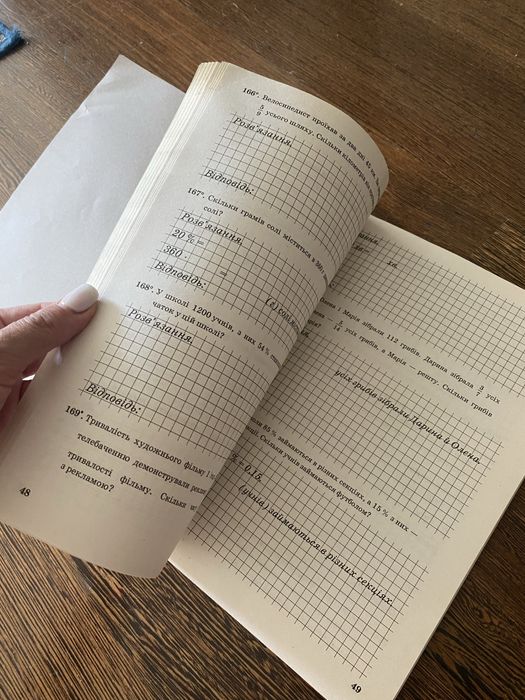 166°. Велосипедист проїхав за два дні 45 км,
5/9 усього шляху. Скільки кілометрів
Розв'язання.
Відповідь:
167°. Скільки грамів солі міститься в 360
солі?
Розв'язання.
20 % =
360 · =
(г) солі
Відповідь:
168°. У школі 1200 учнів, з них 54 %
чаток у цій школі?
Розв'язання.
Відповідь:
169°. Тривалість художнього фільму 1
телебаченню демонстрували
тривалості фільму. Скільки
з рекламою?
48
16.
і Марія зібрали 112 грибів. Дарина зібрала 3/7 усіх
5/14 усіх грибів, а Марія — решту. Скільки грибів
усіх грибів зібрали Дарина й Олена.
85 % займаються в різних секціях, а 15 % з них —
Скільки учнів займаються футболом?
= 0,15.
(учнів) займаються в різних секціях.
49